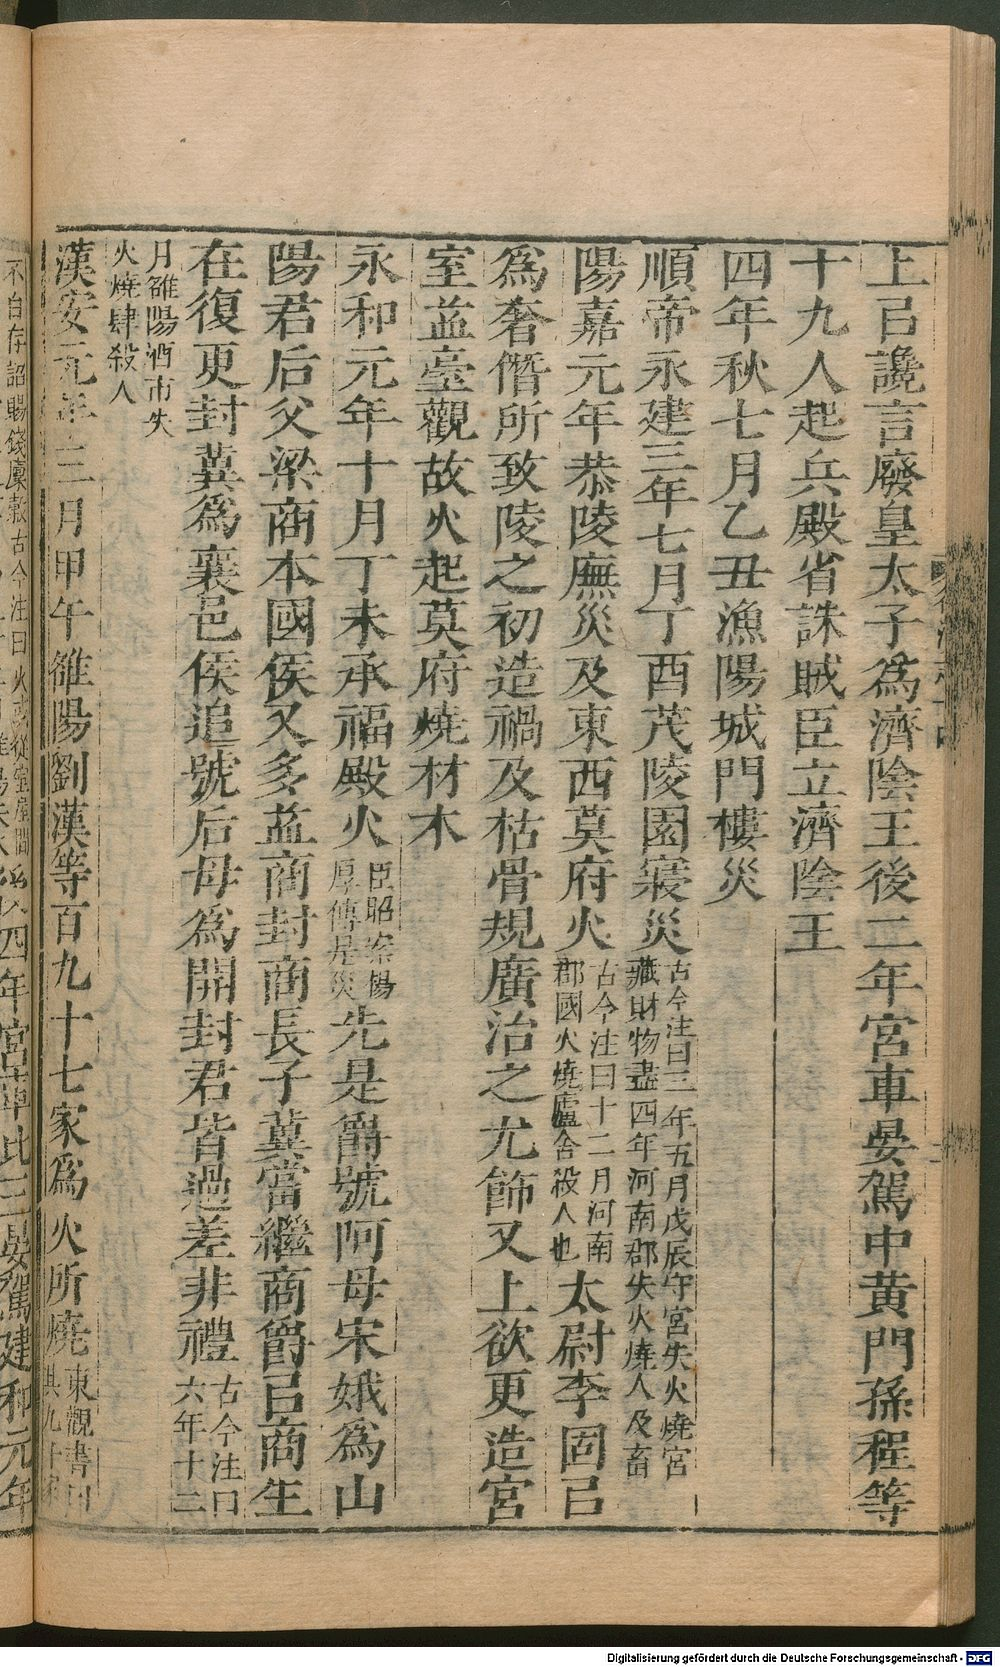 上㠯讒言廢皇太子為濟陰王後二年宮車晏駕中黃門孫程等
十九人起兵殿省誅賊臣立濟陰王
四年秋七月乙丑漁陽城門樓災
順帝永建三年七月丁酉茂陵園寢災古今注曰三年五月戊辰守宮失火燒宮
藏財物盡四年河南郡失火燒人及畜
陽嘉元年恭陵廡災及東西莫府火古今注曰十二月河南
郡國火燒廬舍殺人也太尉李固㠯
為奢僭所致陵之初造禍及枯骨規廣治之尤飾又上欲更造宮
室益臺觀故火起莫府燒材木
永和元年十月丁未承福殿火臣昭案楊
厚傳是災先是爵號阿母宋娥為山
陽君后父梁商本國侯又多益商封商長子冀當繼商爵㠯商生
在復更封冀為襄邑侯追號后母為開封君皆過差非禮古今注曰
六年十二
月雒陽酒市失
火燒肆殺人
漢安元年三月甲午雒陽劉漢等百九十七家為火所燒東觀書曰
其九十家
不自存詔賜錢廩穀古今注曰火或從室屋間
四年宮車比三晏駕建和元年
Digitalisierung gefördert durch die Deutsche Forschungsgemeinschaft - DFG